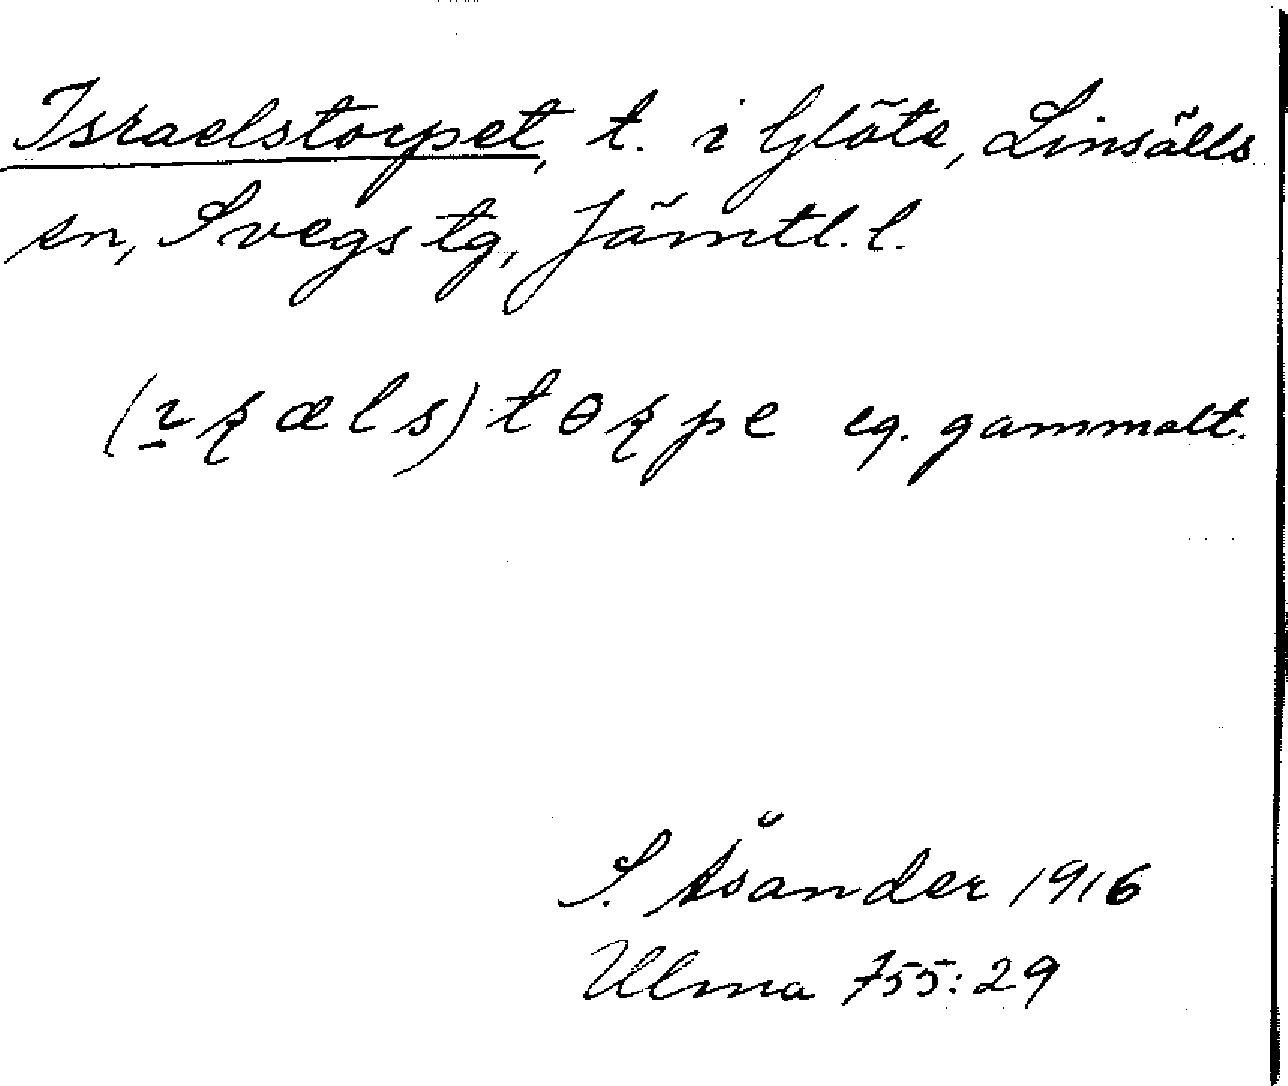 Israelstorpet, t. i Glöte, Linsälls
sn, Svegs tg, Jämtl. l.
(ɪʀæls)tɵʀpe eg. gammalt.
S. Åsander 1916
Ulma 755:29